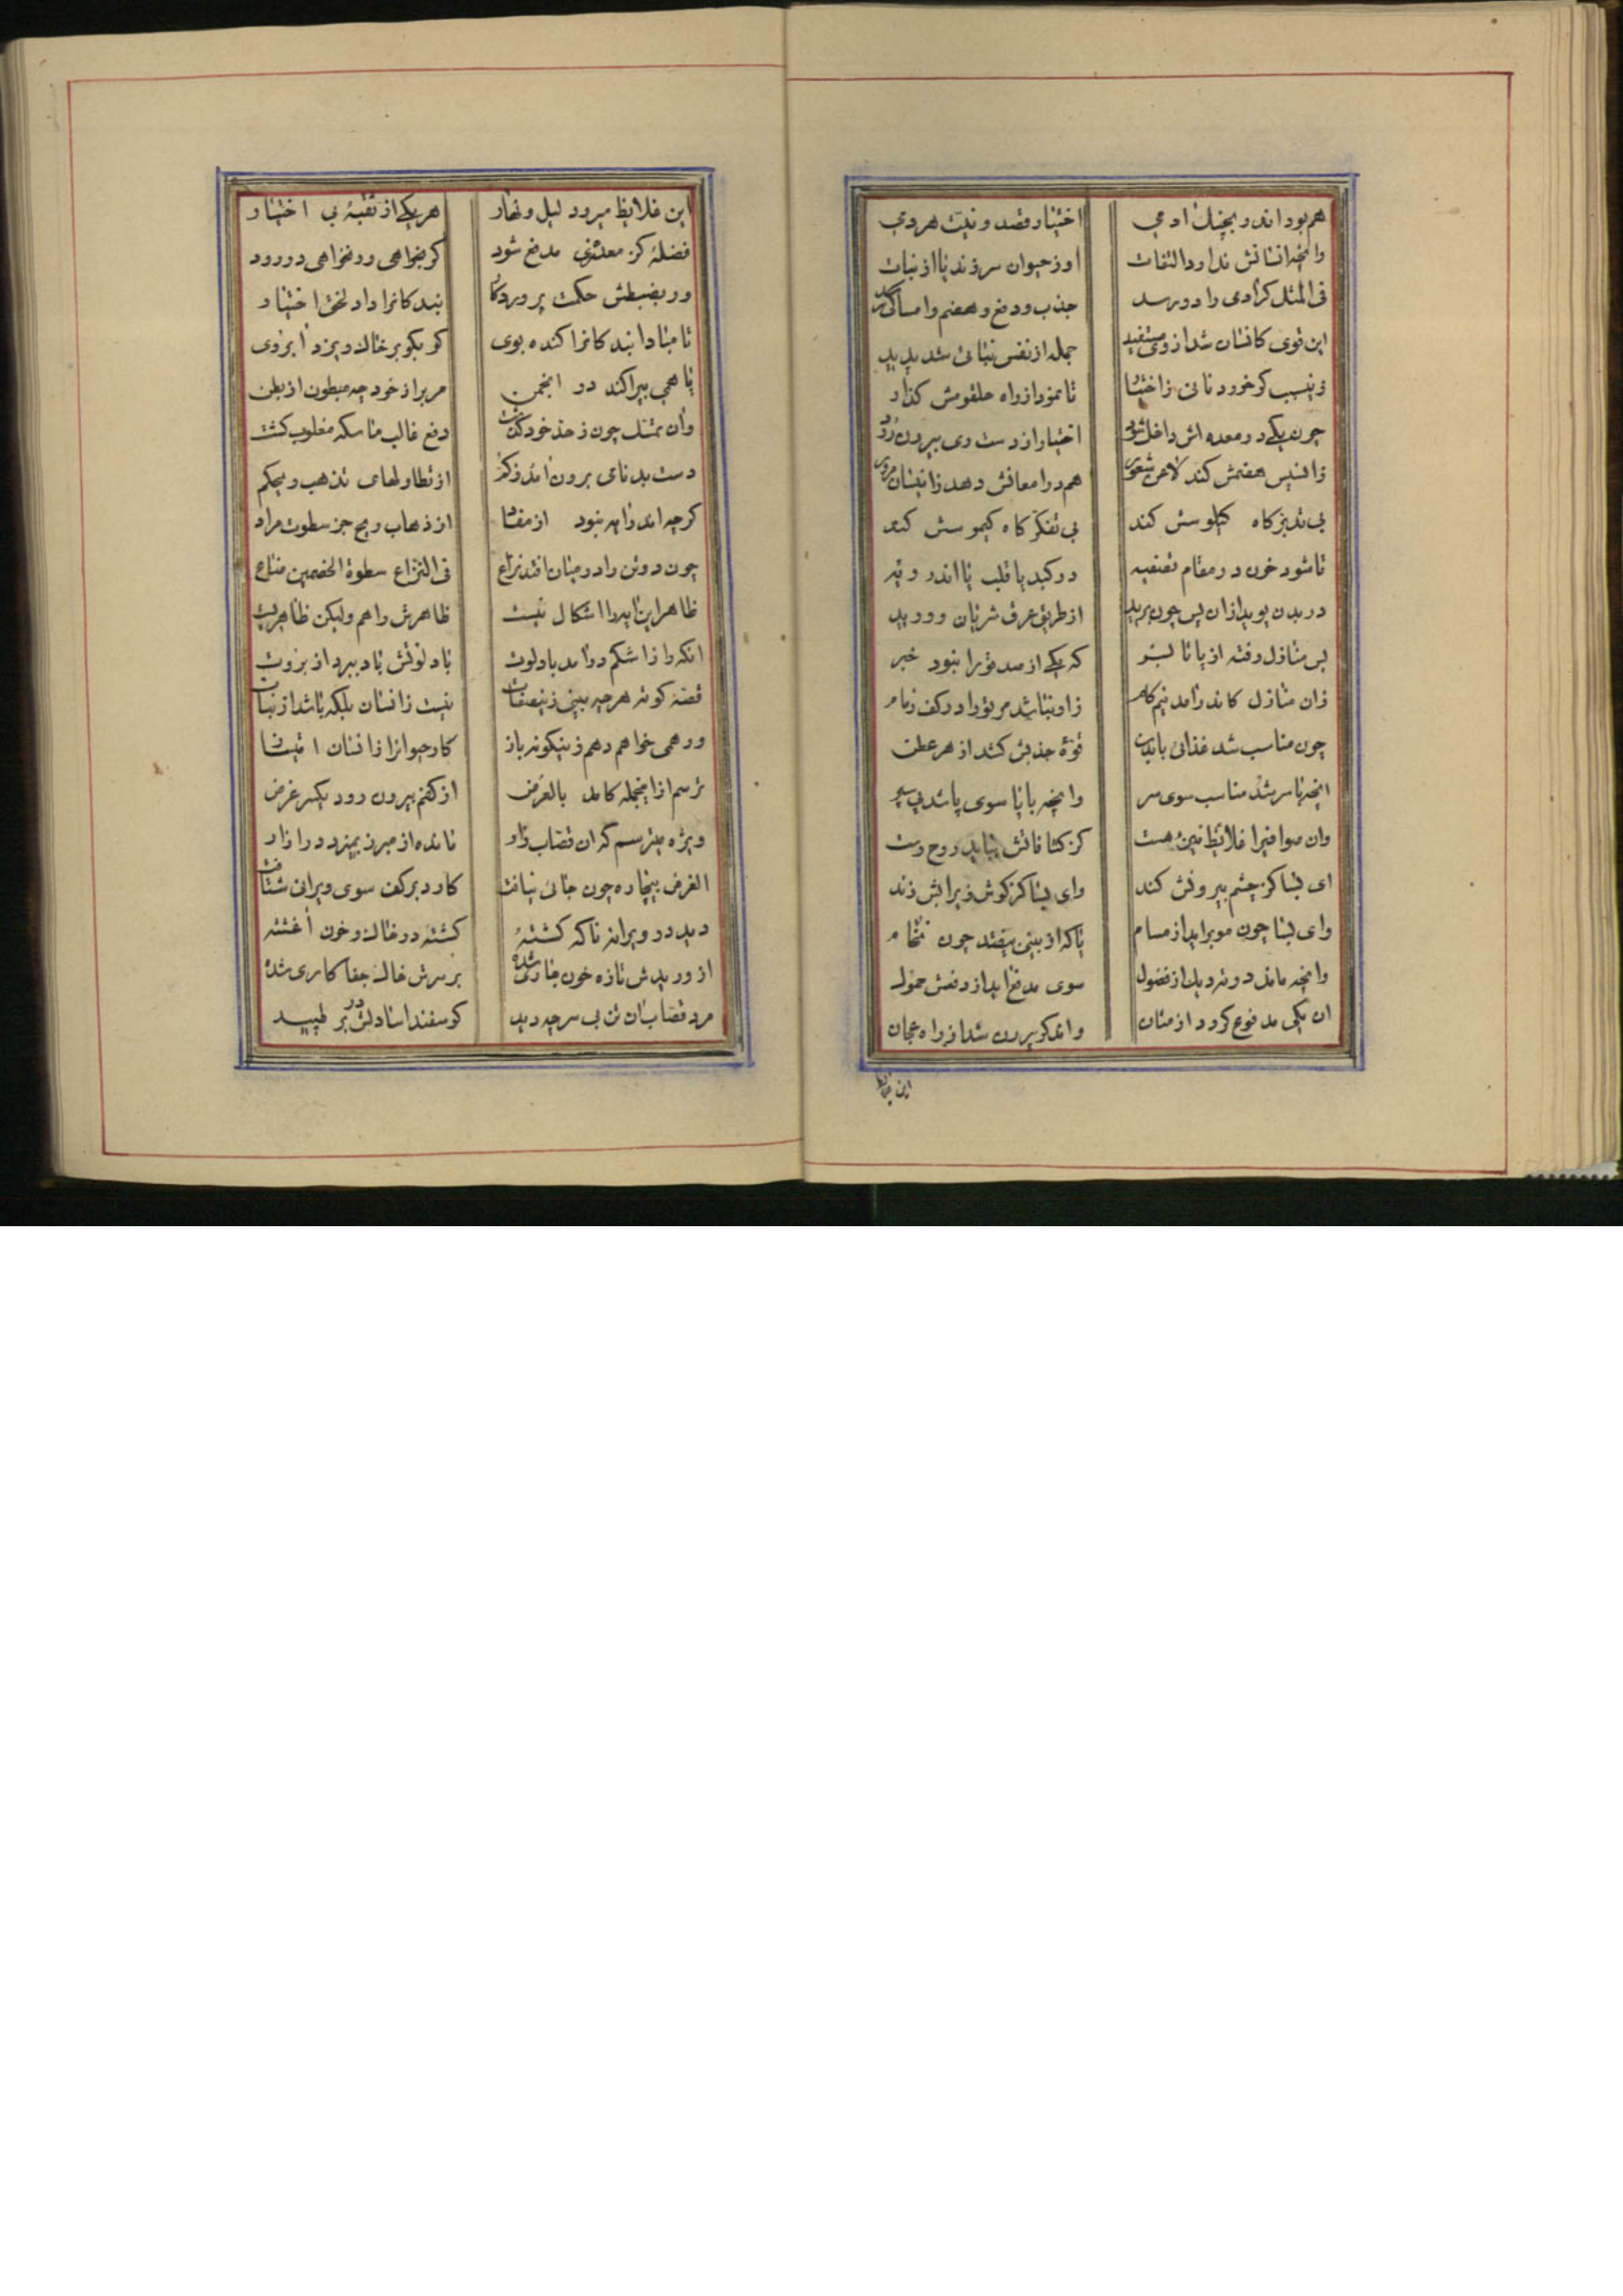 هم بود اندر بچنك ادمی اختیار و قصد و نیت هر دمی
وانچه انسانش ندارد التفات او ز حیوان سر زند یا از نبات
فی المثل کز ادمی را در رسد جذب و دفع و هضم و امساکی
این قوی کانسان شد از وی مستفید جمله از نفس نباتی شد پدید
زینسبب کو خورد نانی ز اختیار تا نمود از راه حلقومش کذار
چون یکی در معده اش داخل شود اختیار از دست وی بیرون رود
زانسپس هضمش کند لاعن شعور هم درا معائش دهد زانیسان مرور
بی تدبر کاه کیلوسش کند بی تفکر کاه کیموسش کند
تا شود خون در مقام تصفیه در کبد یا قلب یا اندر ریه
در بدن پوید ازان پس چون برید از طریق عرق شریان و ورید
بس منازل رفته از پا تا بسر که یکی از صد ترا نبود خبر
زان منازل کاندرامد نیم کام زاو نباشد مر ترا در کف زمام
چون مناسب شد غذائی با بدن قوه جذبش کشد از هر عطن
انچه با سر شد مناسب سوی سر وانچه با پا سوی پا شد پی سپر
وان صوافیرا غلائظ نیز هست کز کثافاتش نیاید روح رست
ای بسا کز چشم بیرونش کند وای بسا کز کوش زیرابش زند
وای بسا چون مو براید از مسام یا که از بینی بیفتد چون نخام
وانچه ماند در تردیك از فضول سوی مدفع اید از دفعش حمول
ان یکی مدفوع کردد از مثان واندکر بیرون شد از راه عجان
این غلایظ
این غلایظ میرود لیل و نهار هر یکی از ثقبهٔ بی اختیار
فضلهٔ کز معدهٔ مدفع شود کر بخواهی ور نخواهی در رود
ور بضبطش حکمت پروردکار بندکانرا داد لختی اختیار
تا مبادا بندکانرا کنده بوی کر بکو بر خاك ریزد ابروی
یا همی بپراکند در انجمن مربر از خود چه مبطون از بطن
وان تمثل چون ز حد خود کذشت دفع غالب ماسکه مغلوب کشت
دست بد نامی برون امد ز کم از تطاولهای تذهب ریحکم
کرچه اندر ایه نبود از مفاد از ذهاب ریح جز سطوت مراد
چون دو تن را در میان افتد نزاع فی النزاع سطوة الخصمین ضاع
ظاهر این ایه را اشکال نیست ظاهرش را هم ولیکن ظاهریست
انکه را زاشکم درامد باد لوت باد لوتش باد ببرد از بروت
قصه کوته هر چه بینی زینصفات نیست زانسان بلکه باشد از نبات
ور همی خواهم دهم زینکونه باز کار حیوانرا زانسان امتیاز
ترسم از اینجمله کامد بالعرض از کفم بیرون رود یکسر غرض
ویژه میترسم که ان قصاب زار مانده از مبرز بمیزد در ازار
الغرض بیچاره چون جائی نیافت کارد بر کف سوی ویرانی شتافت
دید در ویرانه ناکه کشتهٔ کشته در خاك و خون اغشته
از وریدش تازه خون جاری شده بر سرش خاك جفا کاری شده
مرد قصاب ان تن بی سر چه دید کوسفند اسا دلش در بر طپید